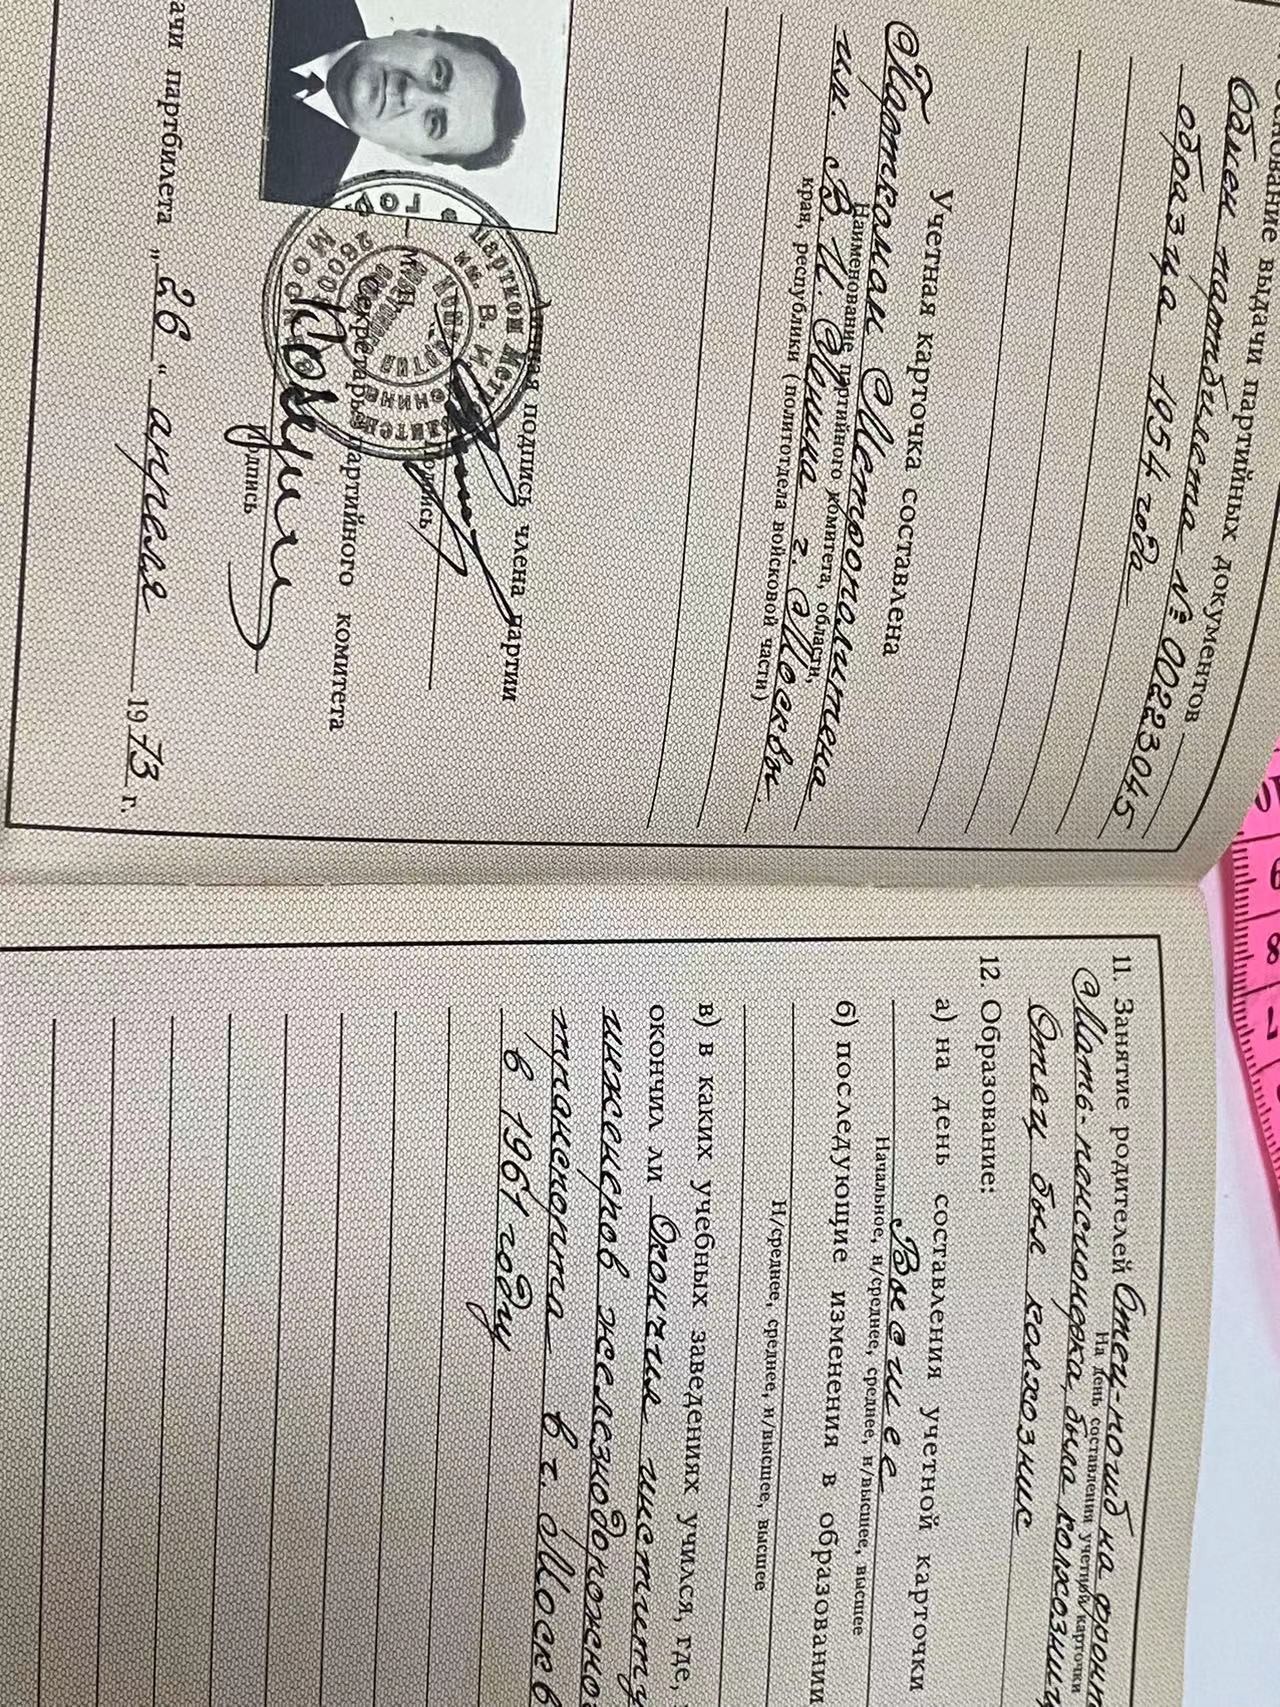 основание выдачи партийных документов
Обмен партбилета № 00223045
образца 1954 года
Учетная карточка составлена
Парткомом Метрополитена
Наименование партийного комитета, области,
им. В. И. Ленина г. Москвы.
края, республики (политотдела войсковой части)
Личная подпись члена партии
подпись
Секретарь партийного комитета
М.П.
подпись
ачи партбилета „26“ апреля 1973 г.
11. Занятие родителей Отец-погиб на фронт
На день составления учетной карточки
Мать-пенсионерка, была колхозниц
Отец был колхозник
12. Образование:
а) на день составления учетной карточки
Высшее
Начальное, н/среднее, среднее, н/высшее, высшее
б) последующие изменения в образовании
Н/среднее, среднее, н/высшее, высшее
в) в каких учебных заведениях учился, где,
окончил ли Окончил институ
инженеров железнодорожно
транспорта в г. Москв
в 1961 году
6
8
7